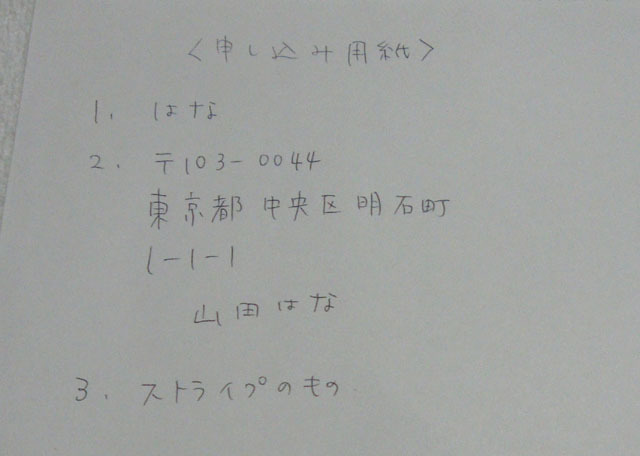 <申し込み用紙>
1. はな
2. 〒103-0044
東京都中央区明石町
1-1-1
山田はな
3. ストライプのもの